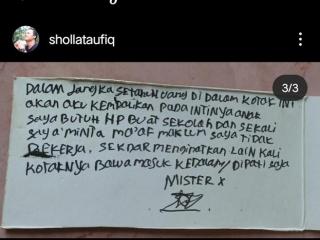 shollataufiq
3/3
DALAM JANGKA SETAHUN UANG DI DALAM KOTAK INI
AKAN AKU KEMBALIKAN PADA INTINYA ANAK
SAYA BUTUH HP BUAT SEKOLAH DAN SEKALI
SAYA MINTA MA'AF MAKLUM SAYA TIDAK
BEKERJA. SEKDAR MENGINGATKAN LAIN KALI
KOTAKNYA BAWA MASUK KEDALAM/ DIPATI SAJA
MISTER X